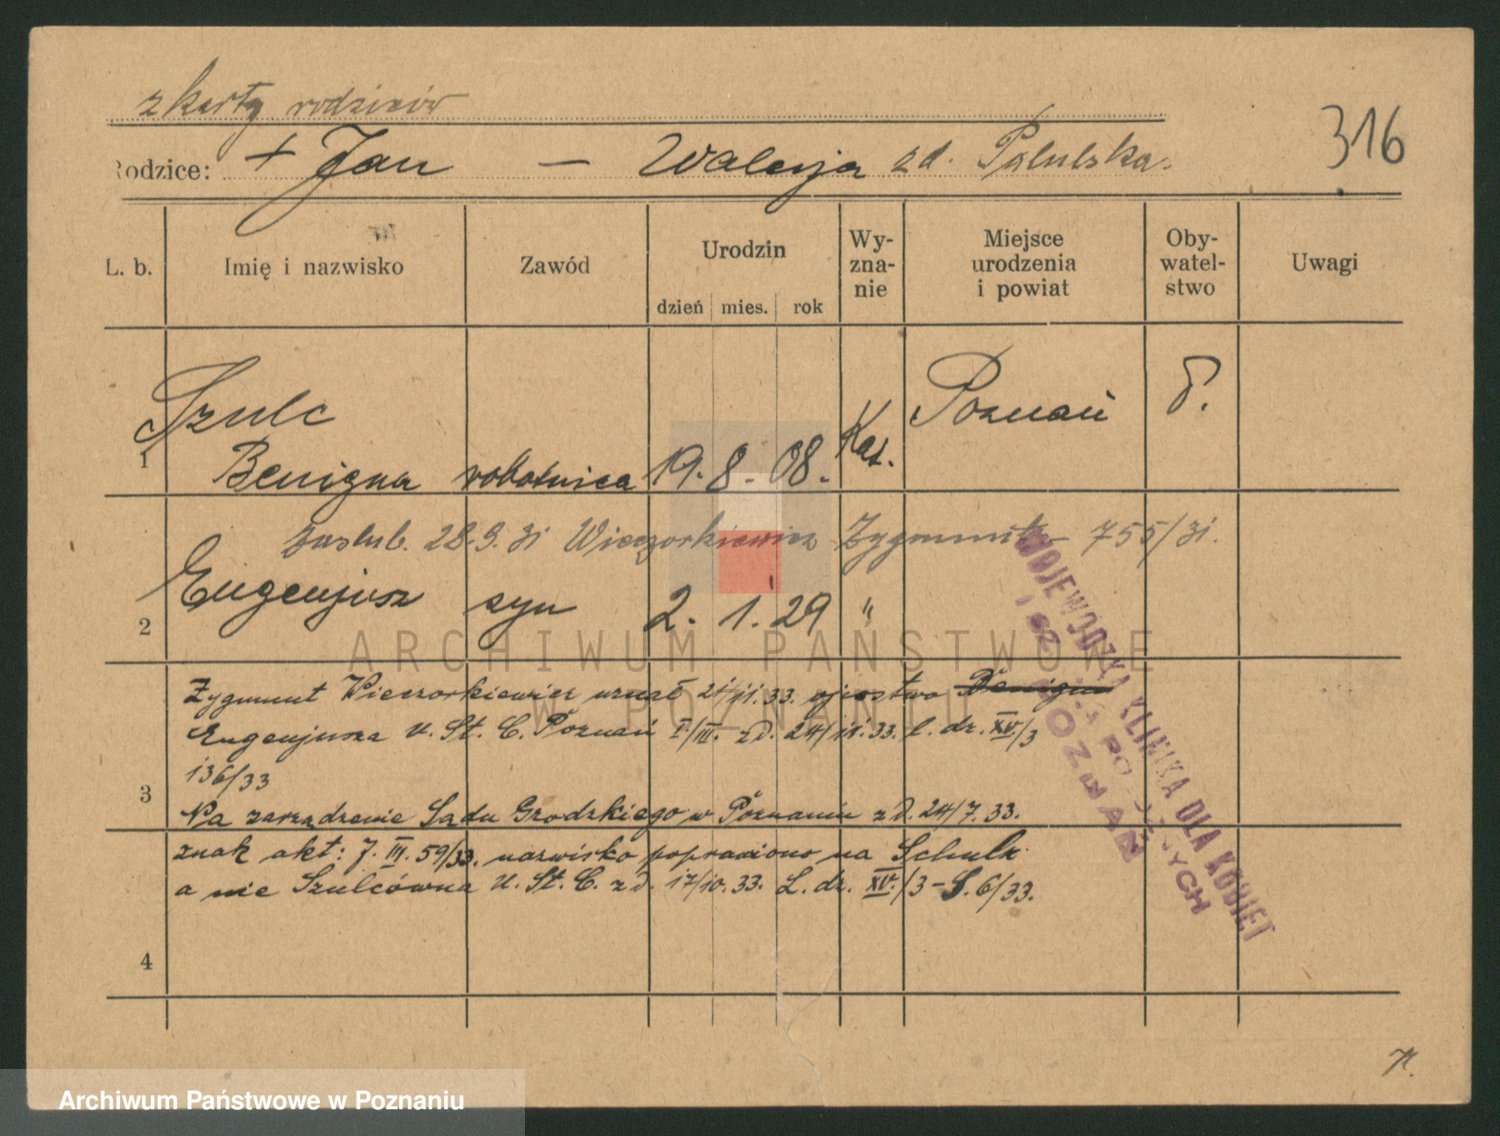 z karty rodziców
316
Rodzice: + Jan — Walerja zd. Palulska.
L. b. Imię i nazwisko Zawód Urodzin dzień mies. rok Wy-zna-nie Miejsce urodzenia i powiat Oby-watel-stwo Uwagi
Szulc Poznań
1 Benigna robotnica 19. 8. 08. Kat.
zaślub. 28.9.31 Wieczorkiewicz Zygmunt 755/31.
2 Eugenjusz syn 2. 1. 29 "
Zygmunt Wieczorkiewicz uznał 33. ojcostwo Benigny
Eugenjusza U. St. C. Poznań I/III. zd. 33. l. dz. XV/3
136/33
3 Na zarządzenie Sądu Grodzkiego w Poznaniu z d. 24/7. 33.
znak akt: 7. III. 59/33. nazwisko poprawiono na Schulz
a nie Szulcówna U. St. C. z d. 17/10. 33. L. dz. XV/3 - S. 6/33.
4
WOJEWÓDZKA KLINIKA DLA KOBIET
POZNAŃ
ARCHIWUM PAŃSTWOWE
W POZNANIU
Archiwum Państwowe w Poznaniu